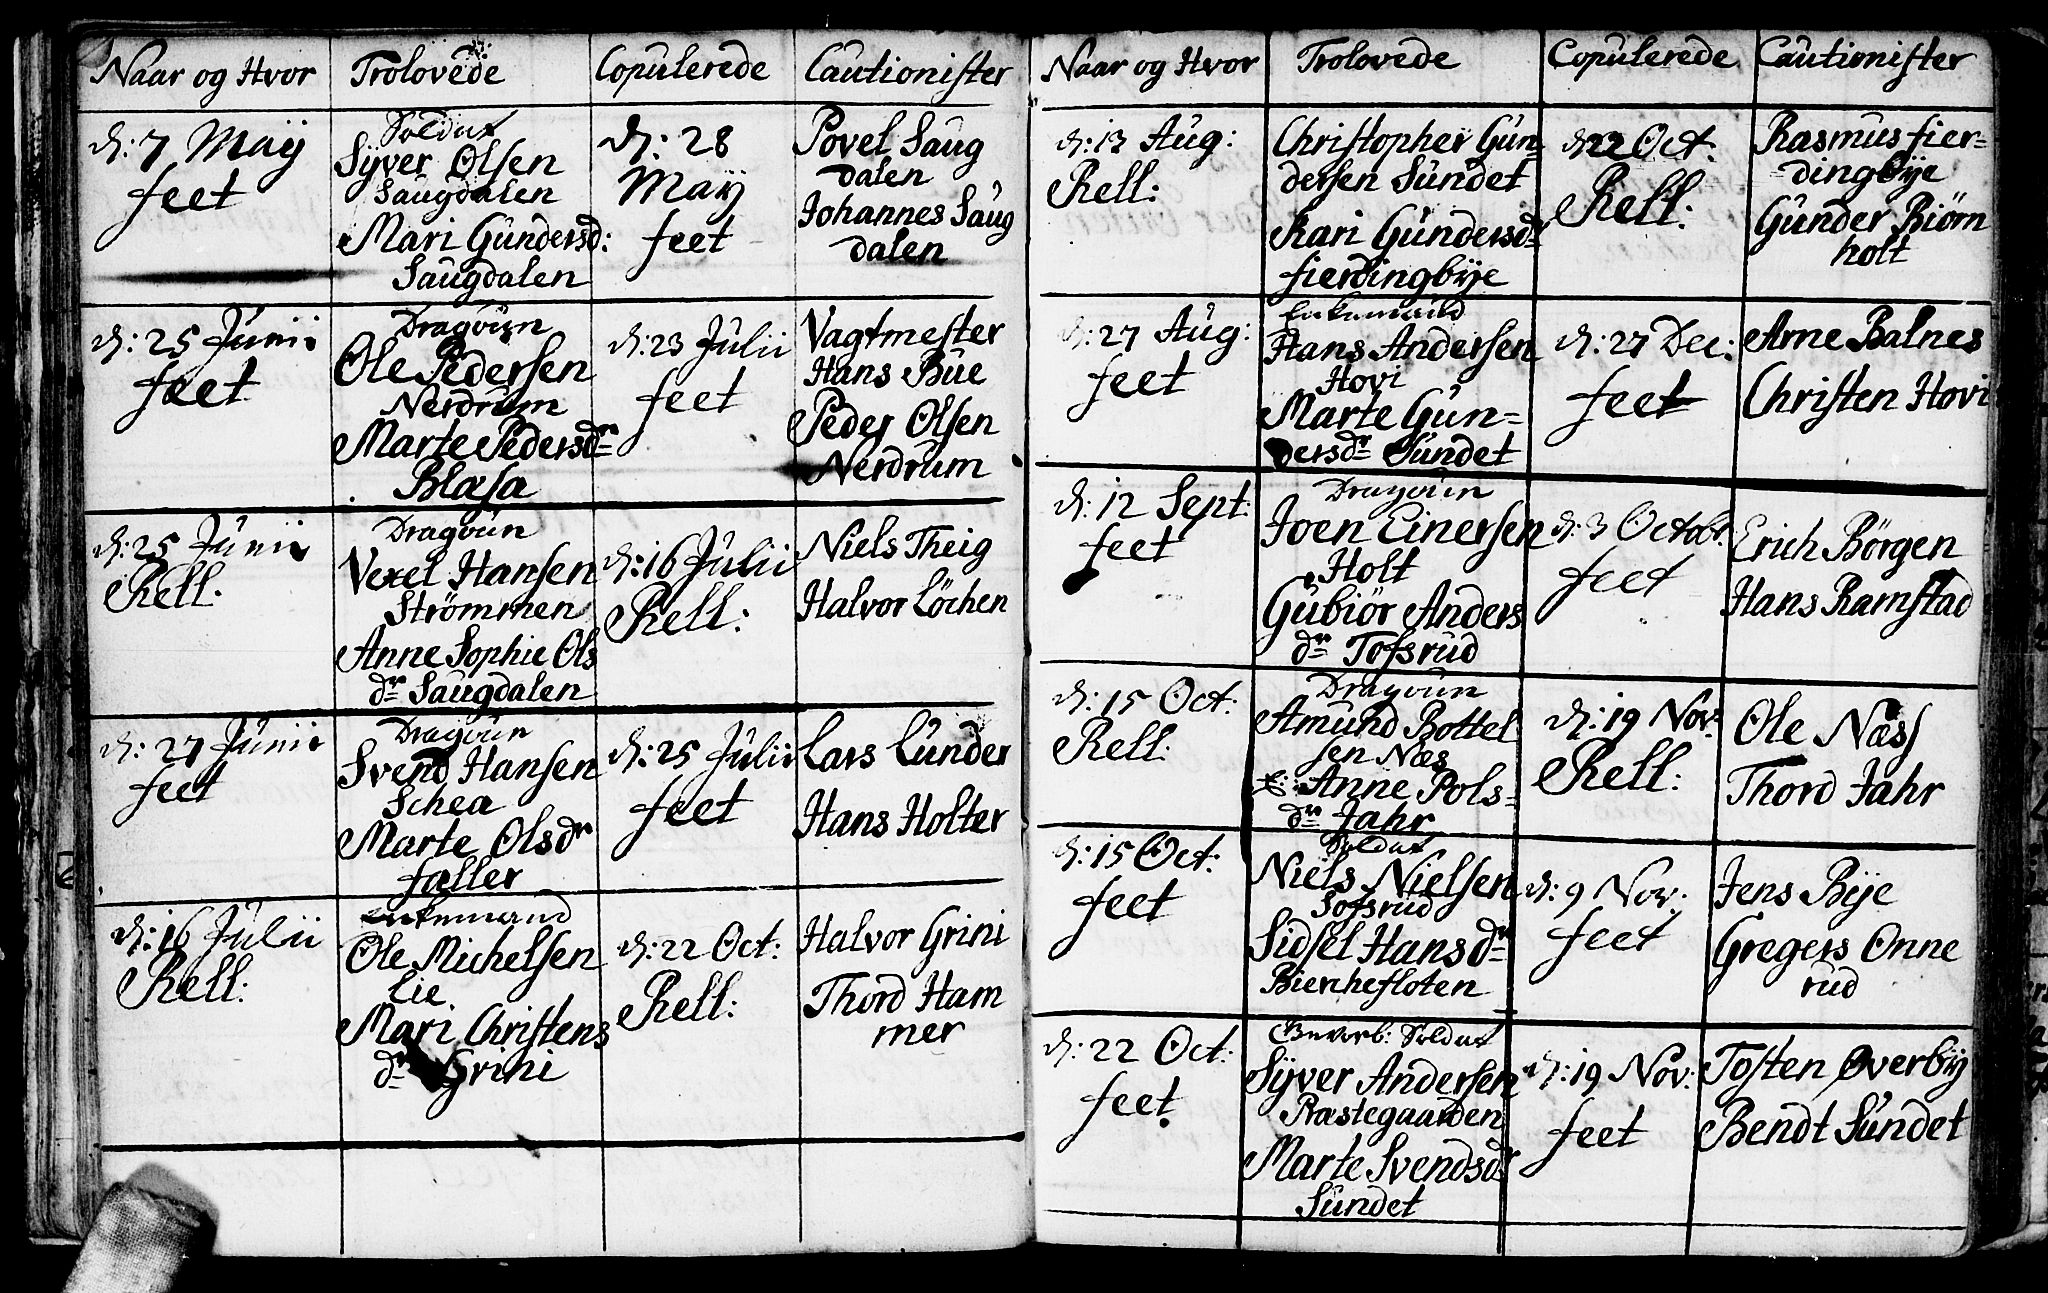 Naar og Hvor Trolovede Copulerede Cautionister
d: 7 Maÿ
feet
Soldat
Sÿver Olsen
Saugdalen
Mari Gundersd:
Saugdalen
d: 28
Maÿ
feet
Povel Saug
dalen
Johannes Saug
dalen
d: 25 Junii
feet
Dragoun
Ole Pedersen
Nerdrum
Marte Pedersdr
Blasa
d: 23 Julii
feet
Vagtmester
Hans Bue
Peder Olsen
Nerdrum
d: 25 Junii
Rell:
Dragoun
Vexel Hansen
Strömmen
Anne Sophie Ols
dr Saugdalen
d: 16 Julii
Rell:
Niels Theig
Halvor Löchen
d: 27 Junii
feet
Dragoun
Svend Hansen
Schea
Marte Olsdr
faller
d: 25 Julii
feet
Lars Lunder
Hans Holter
d: 16 Julii
Rell:
Enkemand
Ole Michelsen
Lie
Mari Christens
dr Grini
d: 22 Oct:
Rell:
Halvor Grini
Thord Ham
mer
Naar og Hvor Trolovede Copulerede Cautionister
d: 13 Aug:
Rell:
Christopher Gun-
dersen Sundet
Kari Gundersdr
fierdingbÿe
d 22 Oct:
Rell:
Rasmus fier-
dingbÿe
Gunder Biörn
holt
d: 27 Aug:
feet
Enkemand
Hans Andersen
Hovi
Marte Gun-
dersdr Sundet
d: 27 Dec:
feet
Arne Balnes
Christen Hovi
d: 12 Sept:
feet
Dragoun
Joen Einersen
Holt
Gubiör Anders
dr Tofsrud
d: 3 Octobr.
feet
Erich Börgen
Hans Ramstad
d: 15 Oct:
Rell:
Dragoun
Amund Bottel
sen Næs
E: Anne Pols-
dr Jahr
d: 19 Nov:
Rell:
Ole Næss
Thord Jahr
d: 15 Oct:
feet
Soldat
Niels Nielsen
Tofsrud
Sidsel Hansdr
Bierchefloten
d: 9 Nov:
feet
Jens Bÿe
Gregers Onne
rud
d: 22 Oct:
feet
Gevorb: Soldat
Sÿver Andersen
Præstegaarden
Marte Svendsdr
Sundet
d: 19 Nov:
feet
Tosten Øverbÿ
Bendt Sundet